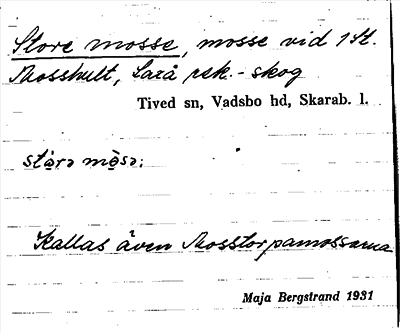 Store mosse, mosse vid 1 St.
Mosshult, Laxå rek.-skog
Tived sn, Vadsbo hd, Skarab. l.
Kallas även Mosstorpamossarna
Maja Bergstrand 1931